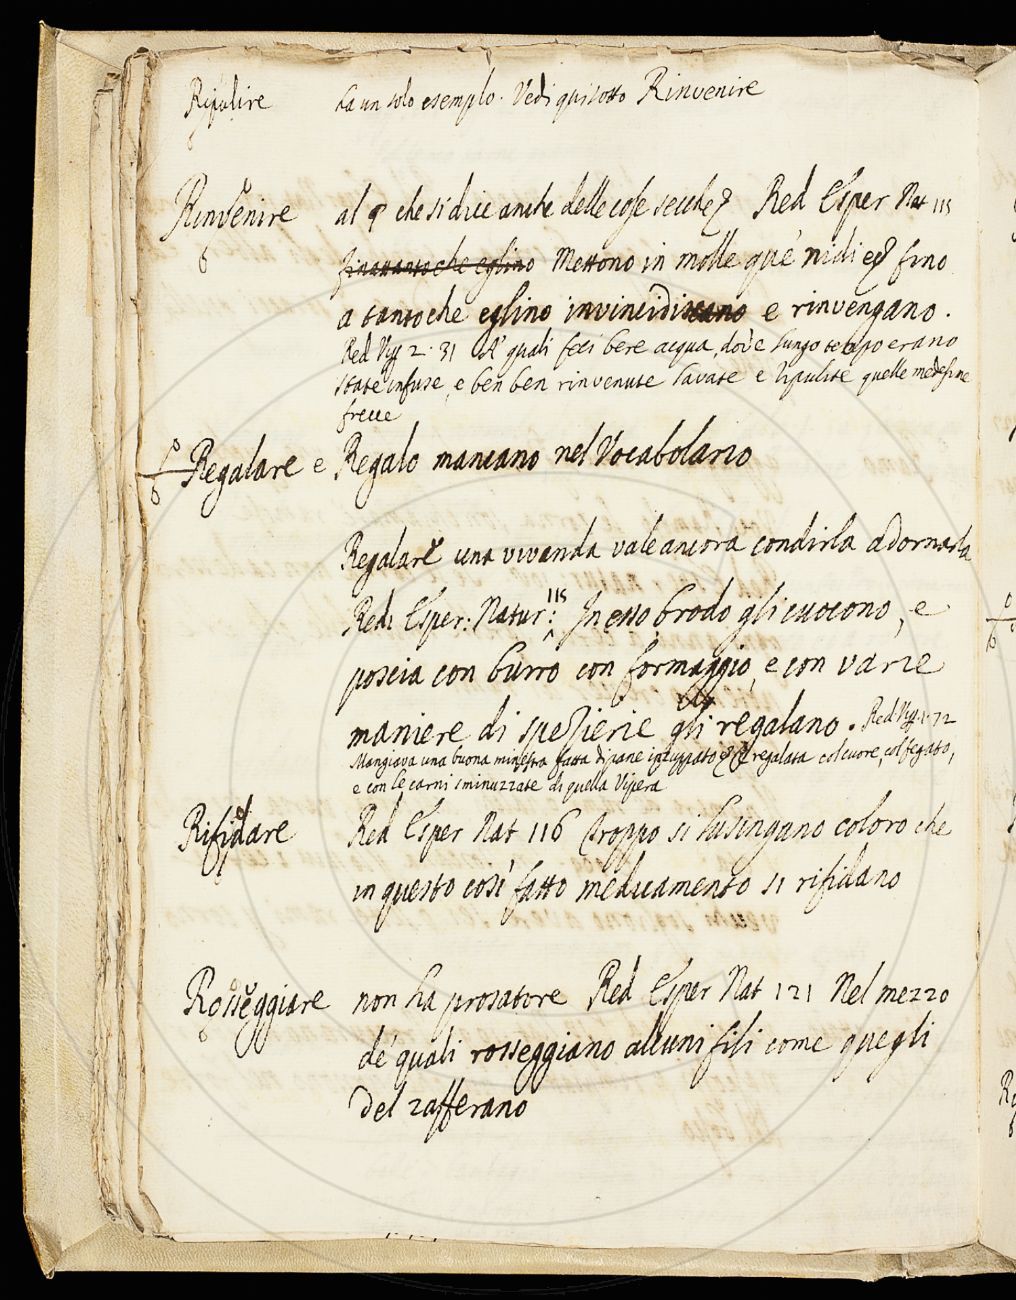 Ripulire ha un solo esemplo. Vedi qui sotto Rinvenire
Rinvenire al § che si dice anche delle cose secche Red Esper Nat 115
finattantoche eglino Mettono in molle que' nidi e fino
a tantoche eglino invincidiscano e rinvengano.
Red Vip 2. 31 A' quali feci bere acqua, dov'e lungo tempo erano
state infuse, e ben ben rinvenute lavate e ripulite quelle medesime
frecce
Regalare e Regalo mancano nel Vocabolario
Regalare una vivanda vale ancora condirla adornarla
Redi Esper: Natur: 115 In esso brodo gli cuocono, e
poscia con burro con formaggio, e con varie
maniere di spezierie gli regalano. Red Vip. 1. 72
Mangiava una buona minestra fatta di pane inzuppato regalata col cuore, col fegato,
e con le carni sminuzzate di quella Vipera
Rifidare Red Esper Nat 116 troppo si lusingano coloro che
in questo così fatto medicamento si rifidano
Rosseggiare non ha prosatore Red Esper Nat 121 Nel mezzo
de' quali rosseggiano alcuni fili come quegli
del zafferano